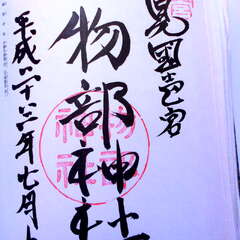 見國壱宮
物部神社
物部神社
平成二十六年七月